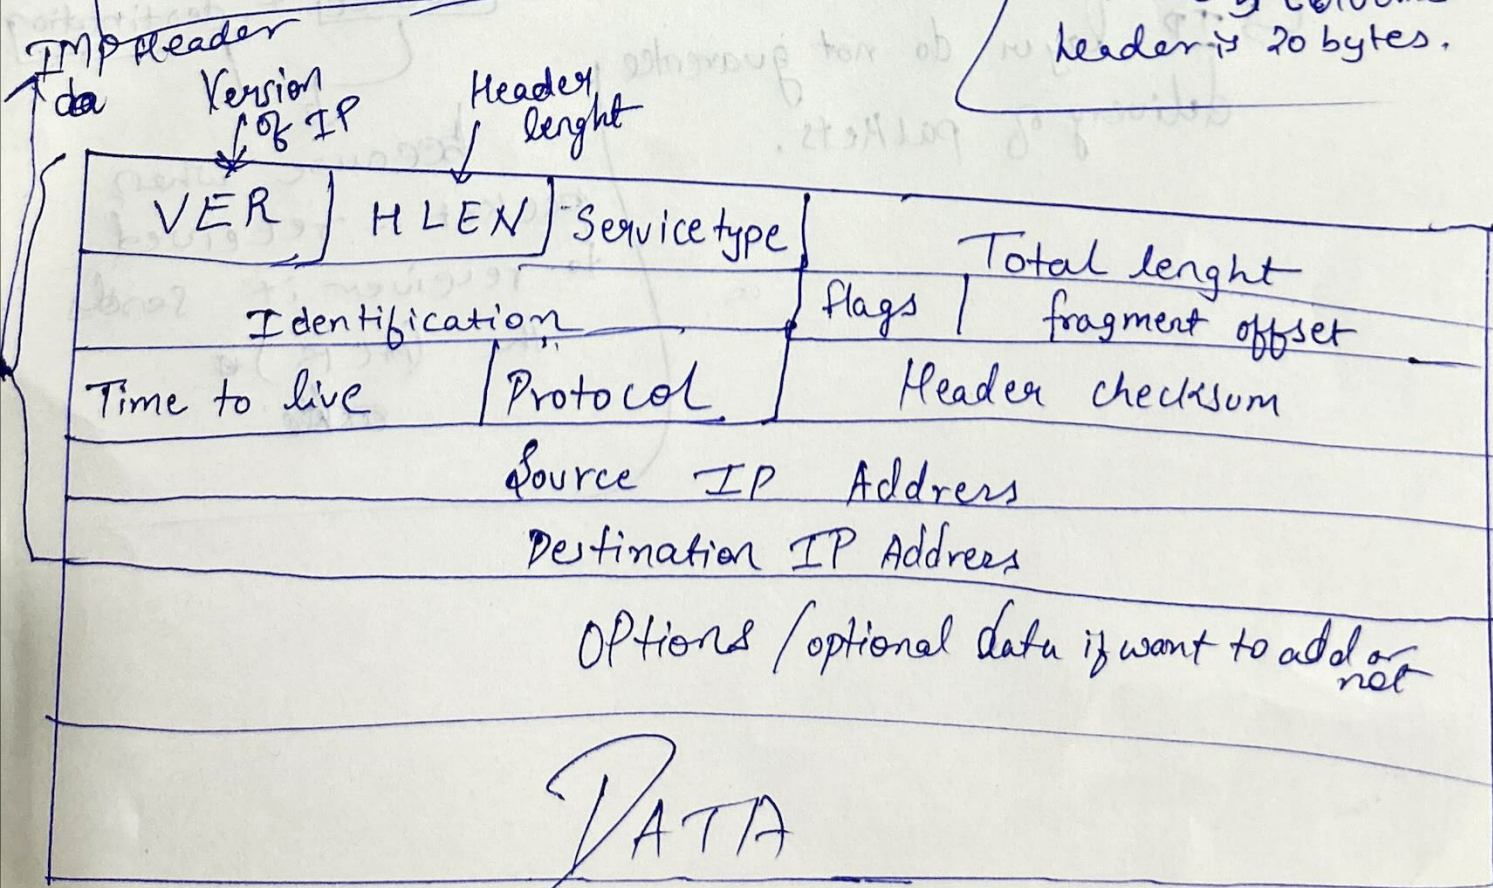 header is 20 bytes.
IMP Header
Version
of IP
Header
lenght
VER HLEN Service type Total lenght
Identification flags fragment offset
Time to live Protocol Header checksum
Source IP Address
Destination IP Address
Options / optional data if want to add or
not
DATA